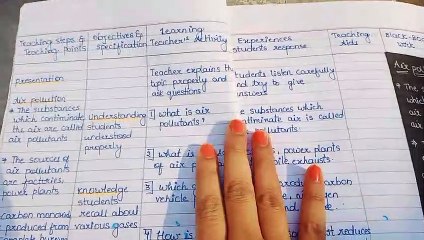 Teaching steps &
Teaching Points
Objectives &
specification
Learning
Teacher's Activity
Experiences
students response
Teaching
Aids
Black-Bo
work
Presentation
Air pollution
• The substances
which contiminate
the air are called
air pollutants
• The sources of
air pollutants
are factories,
power plants
carbon monoxi
produced from
Understanding
students
understood
properly
Knowledge
students
recall about
various gases.
Teacher explains th
topic properly and
ask questions
1] what is air
pollutants?
2] what is
of air p
3] which
vehicle.
4] How is
students listen carefully
nd try to give
answers
e substances which
ontiminate air is called
pollutants.
power plants
bile exhausts.
carbon
reduces
Air po
• The